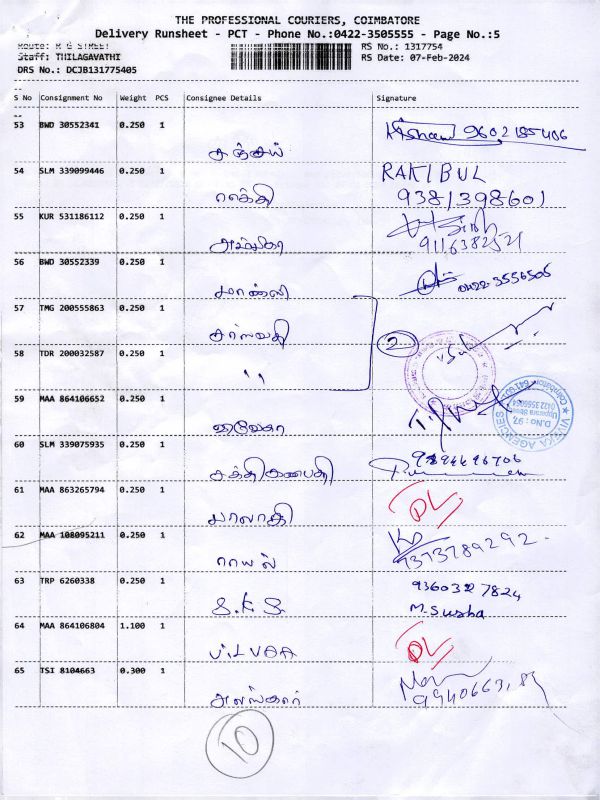 THE PROFESSIONAL COURIERS, COIMBATORE
Delivery Runsheet - PCT - Phone No.:0422-3505555 - Page No.:5
Route: R G STREET
RS No.: 1317754
Staff: THILAGAVATHI
RS Date: 07-Feb-2024
DRS No.: DCJB131775405
S No Consignment No Weight PCS Consignee Details Signature
53 BWD 30552341 0.250 1
சஞ்சய்
54 SLM 339099446 0.250 1 RAKIBUL
லக்கி 9381398601
55 KUR 531186112 0.250 1
அம்பிகா
56 BWD 30552339 0.250 1
0422-3556506
57 TMG 200555863 0.250 1
சரஸ்வதி
2
58 TDR 200032587 0.250 1
"
59 MAA 864106652 0.250 1
D.No: 97,
VIVEKA AGENCIES
60 SLM 339075935 0.250 1
சக்திகணபதி
61 MAA 863265794 0.250 1
DL
பாலாஜி
62 MAA 108095211 0.250 1
ராயல் 7373789292
63 TRP 6260338 0.250 1 9360327824
S.K.S. M.Susha
64 MAA 864106804 1.100 1
DL
65 TSI 8104663 0.300 1
அலங்கார்
10